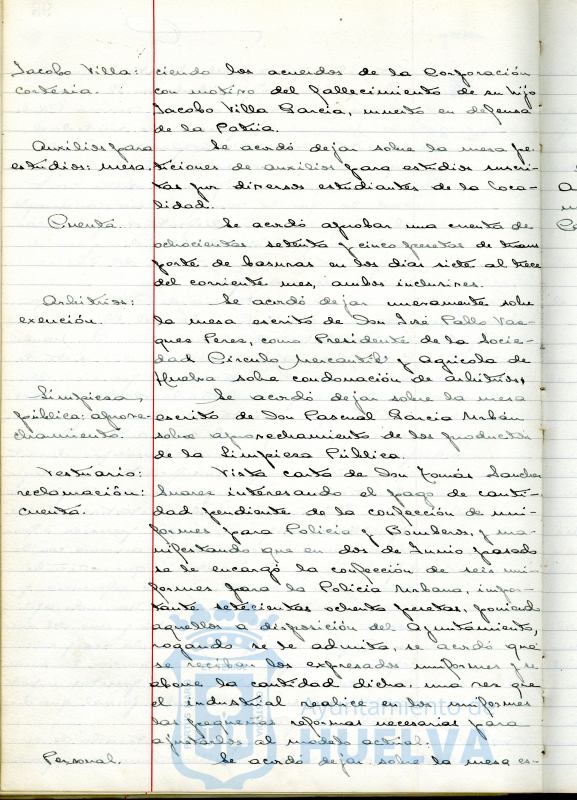 Jacobo Villa: ciendo los acuerdos de la Corporación
cortesía. con motivo del fallecimiento de su hijo
Jacobo Villa García, muerto en defensa
de la Patria.
Auxilios para Se acordó dejar sobre la mesa pe-
estudios: mesa. ticiones de auxilios para estudios suscri-
tas por diversos estudiantes de la loca-
lidad.
Cuenta. Se acordó aprobar una cuenta de
ochocientas setenta y cinco pesetas de trans
porte de basuras en los días siete al trece
del corriente mes, ambos inclusives.
Arbitrios: Se acordó dejar nuevamente sobre
exención. la mesa escrito de Don José Pablo Vaz-
ques Peres, como Presidente de la Socie-
dad Círculo Mercantil y Agrícola de
Huelva sobre condonación de arbitrios.
Limpiesa Se acordó dejar sobre la mesa
pública: aprove- escrito de Don Pascual García Urbán
chamiento. sobre aprovechamiento de los productos
de la Limpiesa Pública.
Vestuario: Vista carta de Don Tomás Sanches
reclamación: Suares interesando el pago de canti-
cuenta. dad pendiente de la confección de uni-
formes para Policía y Bomberos, y ma-
nifestando que en dos de Junio pasado
se le encargó la confección de seis uni-
formes para la Policía Urbana, impor-
tante setecientas ochenta pesetas, poniendo
aquellos a disposición del Ayuntamiento,
rogando se le admita, se acordó que
se reciban los expresados uniformes y se
abone la cantidad dicha, una ves que
el industrial realice en los uniformes
las pequeñas reformas necesarias para
ajustarlos al modelo actual.
Personal. Se acordó dejar sobre la mesa es-
Ayuntamiento de
HUELVA